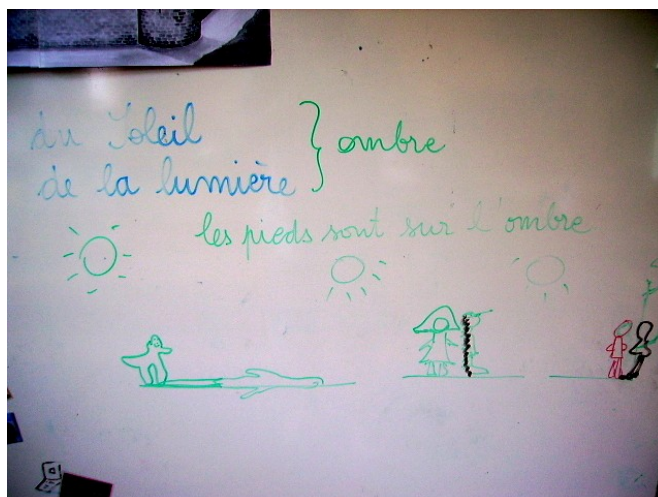 du Soleil
de la lumière
ombre
les pieds sont sur l'ombre